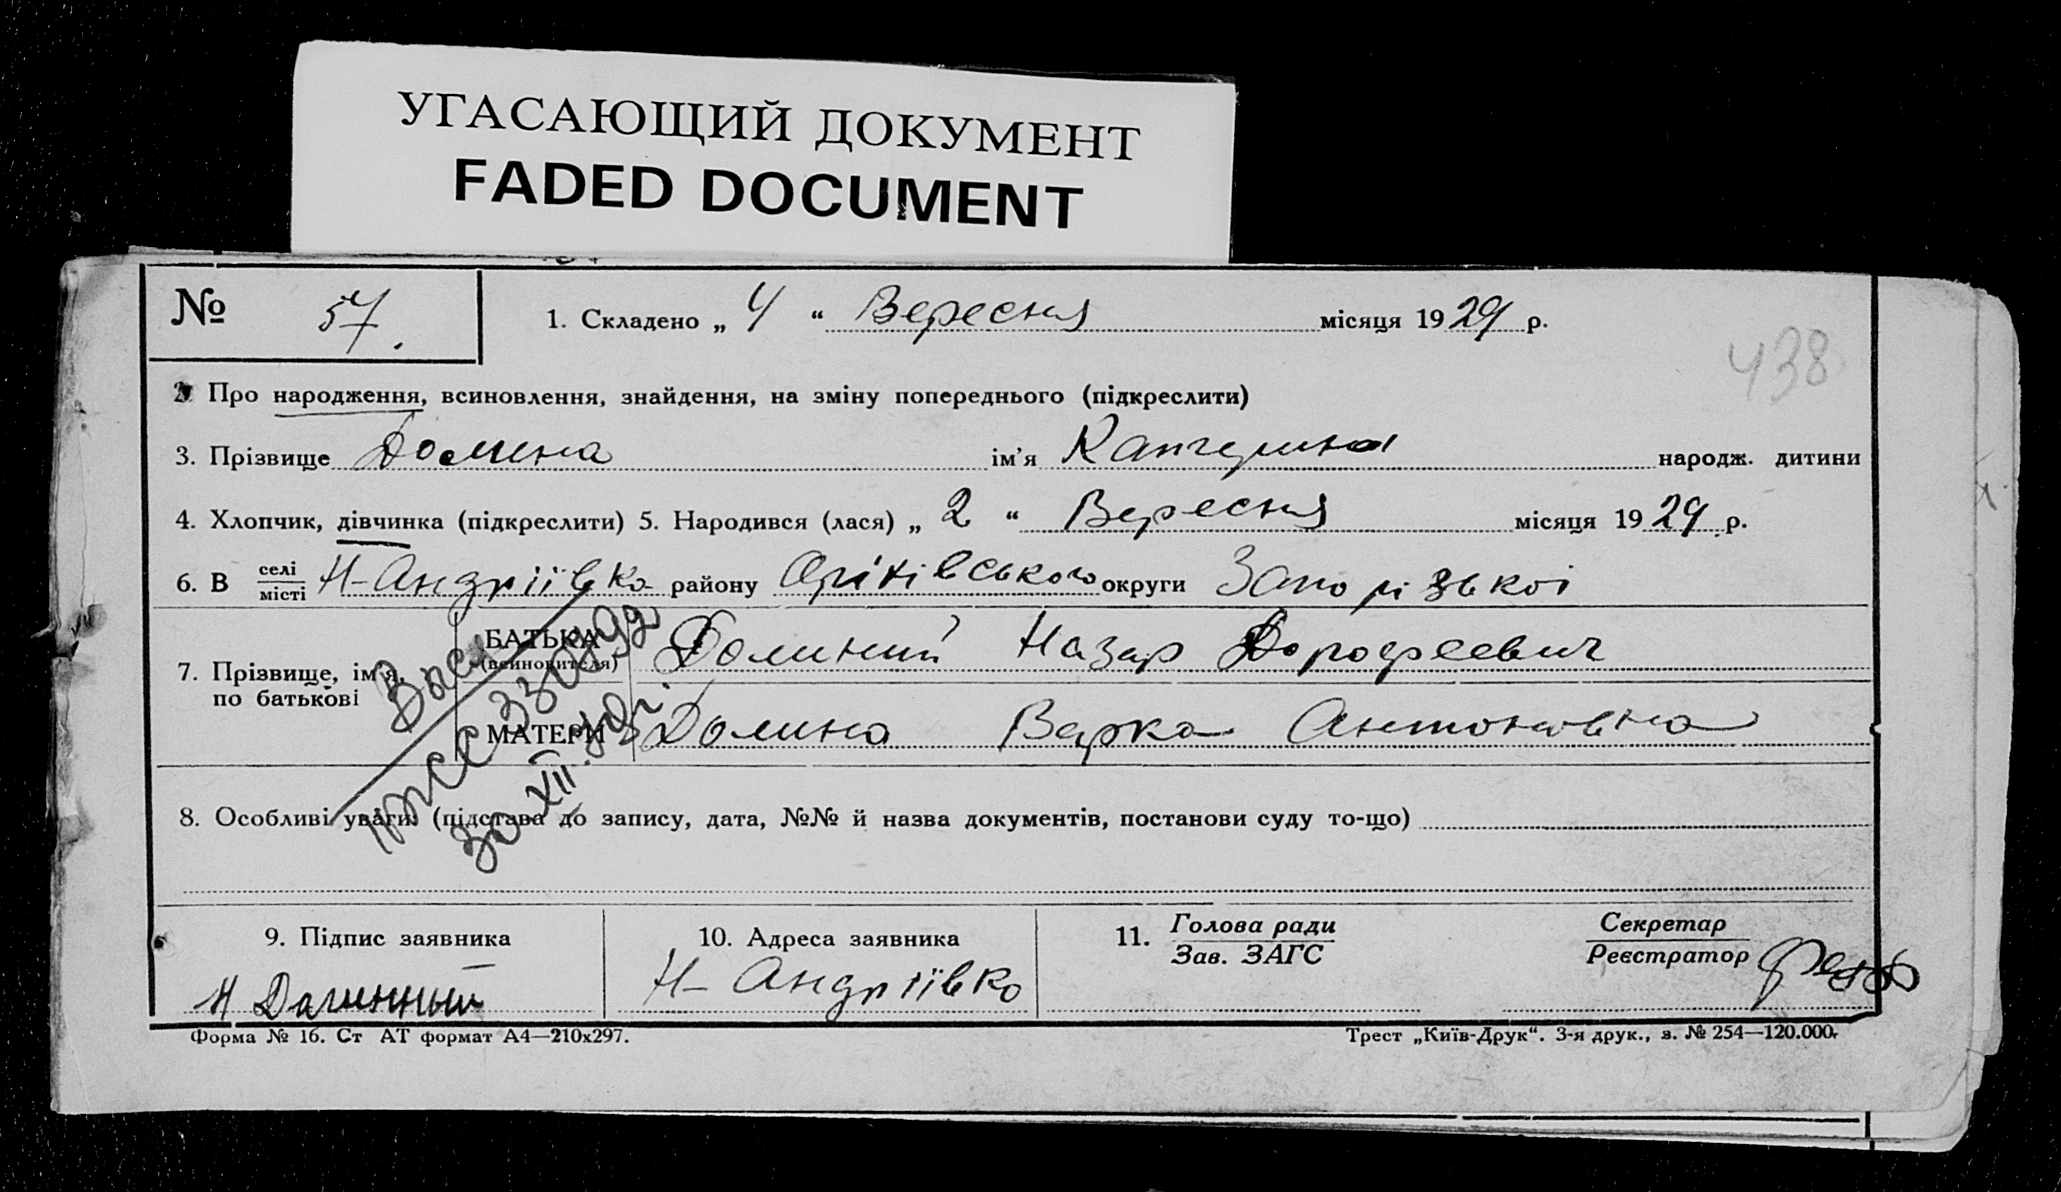 УГАСАЮЩИЙ ДОКУМЕНТ
FADED DOCUMENT
№ 57.
1. Складено „ 4 “ Вересня місяця 1929 р.
438
2. Про народження, всиновлення, знайдення, на зміну попереднього (підкреслити)
3. Прізвище Долина ім’я Катерина народж. дитини
4. Хлопчик, дівчинка (підкреслити) 5. Народився (лася) „ 2 “ Вересня місяця 1929 р.
6. В селі
місті Н-Андріївка району Оріхівського округи Запорізької
7. Прізвище, ім’я,
по батькові
БАТЬКА
(всиновителя) Долиний Назар Дорофеевич
МАТЕРИ Долина Верка Антоновна
8. Особливі уваги: (підстава до запису, дата, №№ й назва документів, постанови суду то-що)
9. Підпис заявника
Н Долинный
10. Адреса заявника
Н-Андріївка
11. Голова ради
Зав. ЗАГС
Секретар
Реєстратор
Форма № 16. Ст АТ формат А4—210х297.
Трест „Київ-Друк“. 3-я друк., з. № 254—120.000.